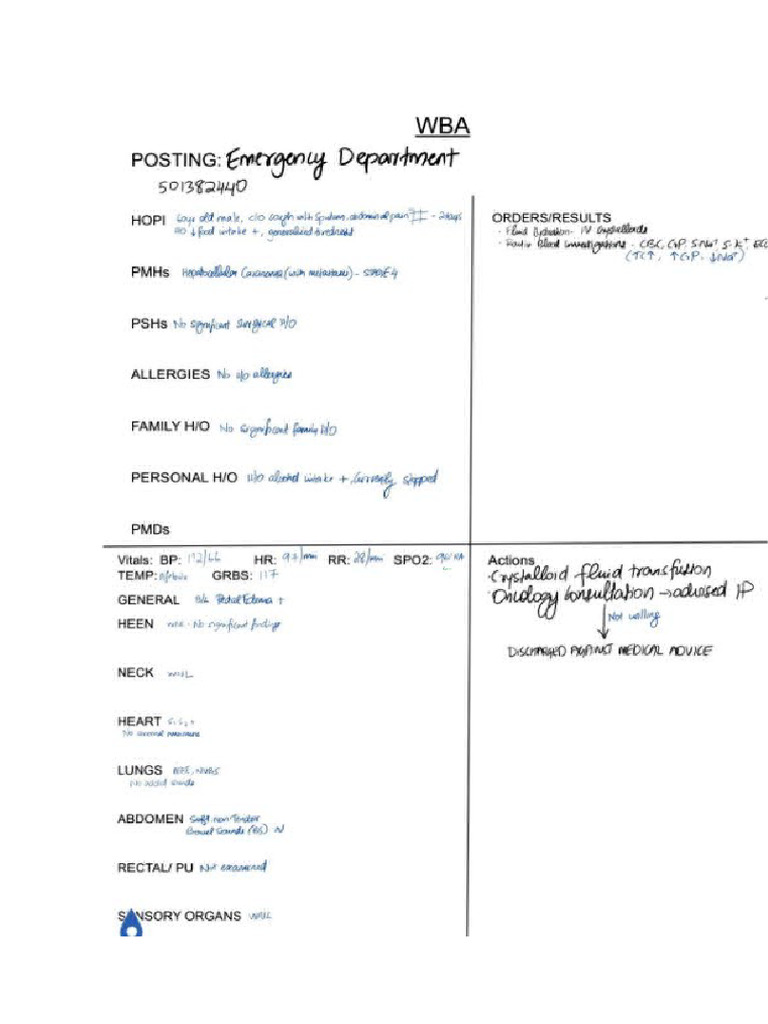 WBA
POSTING: Emergency Department
501382440
HOPI old male, c/o cough with sputum, abdominal pain - 2days
H/O ↓ food intake +, generalised
PMHs Hepatocellular Carcinoma (with metastasis) - STAGE 4
PSHs No significant SURGICAL H/O
ALLERGIES No h/o allergies
FAMILY H/O No significant family H/O
PERSONAL H/O H/O alcohol intake +, currently stopped
PMDs
ORDERS/RESULTS
- Fluid - IV Crystalloids
- Blood investigations - CBC, CRP, S.Na⁺, S.K⁺,
(TC↑, ↑CRP, ↓Na⁺)
Vitals: BP: HR: /min RR: /min SPO2: RA
TEMP: GRBS: 117
GENERAL B/L Pedal Edema +
HEEN No significant findings
NECK WNL
HEART S₁S₂+
No murmurs
LUNGS
No added sounds
ABDOMEN Soft, non tender
Bowel Sounds (BS) N
RECTAL/ PU Not examined
SENSORY ORGANS WNL
Actions
• Crystalloid fluid transfusion
• Oncology consultation → advised IP
↓ Not willing
DISCHARGED AGAINST MEDICAL ADVICE